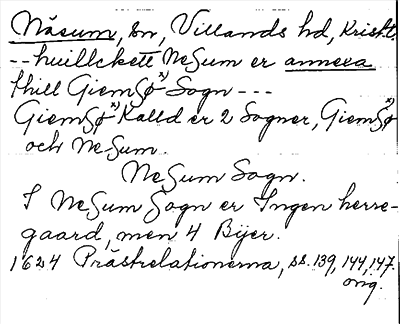 Näsum, sn, Villands hd, Krist.
-- huillckett Neßum er annexa
thill Giemßø x) Sogn ---
Giemßø x) Kalld er 2 Sogner, Giemßø x)
och Neßum.
Neßum Sogn.
I Neßum Sogn er Ingen herre-
gaard, men 4 Bÿer.
1624 Prästrelationerna, ss. 139, 144, 147.
orig.